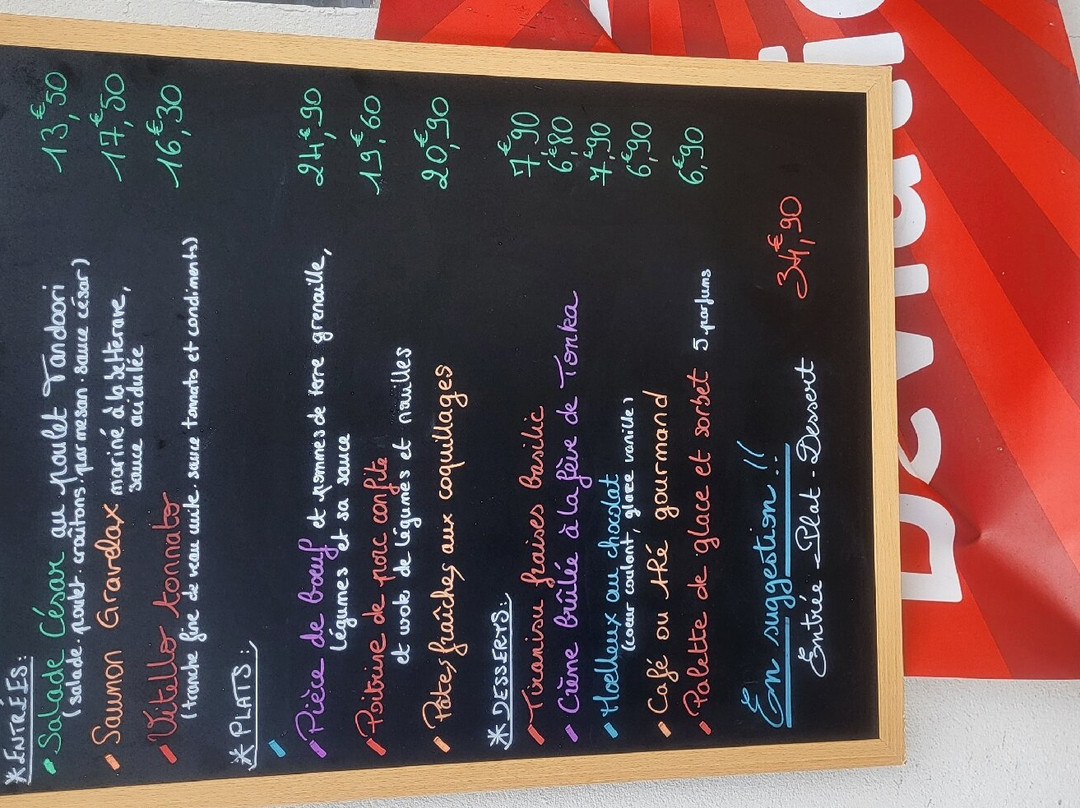 * ENTRÉES:
- Salade César au poulet Tandoori 13,€50
(salade. poulet. croûtons. parmesan. sauce césar)
- Saumon Gravdax mariné à la betterave, 17,€50
sauce acidulée
- Vitello tonnato 16,€30
(tranche fine de veau cuite. sauce tonnato et condiments)
* PLATS:
-
- Pièce de bœuf et pommes de terre grenaille, 24,€90
légumes et sa sauce
- Poitrine de porc confite 19,€60
et wok de légumes et nouilles
- Pâtes fraîches aux coquillages 20,€90
* DESSERTS:
- Tiramisu fraises basilic 7,€90
- Crème brûlée à la fève de Tonka 6,€80
- Moelleux au chocolat 7,€90
(coeur coulant, glace vanille)
- Café ou thé gourmand 6,€90
- Palette de glace et sorbet 5 parfums 6,€90
En suggestion !!
Entrée - Plat - Dessert 34,€90